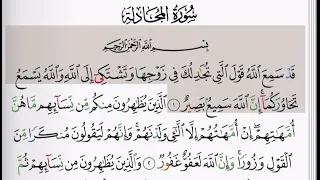 سُورَةُ المُجَادلَةِ
بِسْمِ اللَّهِ الرَّحْمَٰنِ الرَّحِيمِ
قَدْ سَمِعَ اللَّهُ قَوْلَ الَّتِي تُجَٰدِلُكَ فِي زَوْجِهَا وَتَشْتَكِي إِلَى اللَّهِ وَاللَّهُ يَسْمَعُ
تَحَاوُرَكُمَا إِنَّ اللَّهَ سَمِيعٌ بَصِيرٌ ١ الَّذِينَ يُظَٰهِرُونَ مِنكُم مِّن نِّسَآئِهِم مَّا هُنَّ
أُمَّهَٰتِهِمْ إِنْ أُمَّهَٰتُهُمْ إِلَّا الَّٰٓـِٔي وَلَدْنَهُمْ وَإِنَّهُمْ لَيَقُولُونَ مُنكَرًا مِّنَ
الْقَوْلِ وَزُورًا وَإِنَّ اللَّهَ لَعَفُوٌّ غَفُورٌ ٢ وَالَّذِينَ يُظَٰهِرُونَ مِن نِّسَآئِهِمْ ثُمَّ